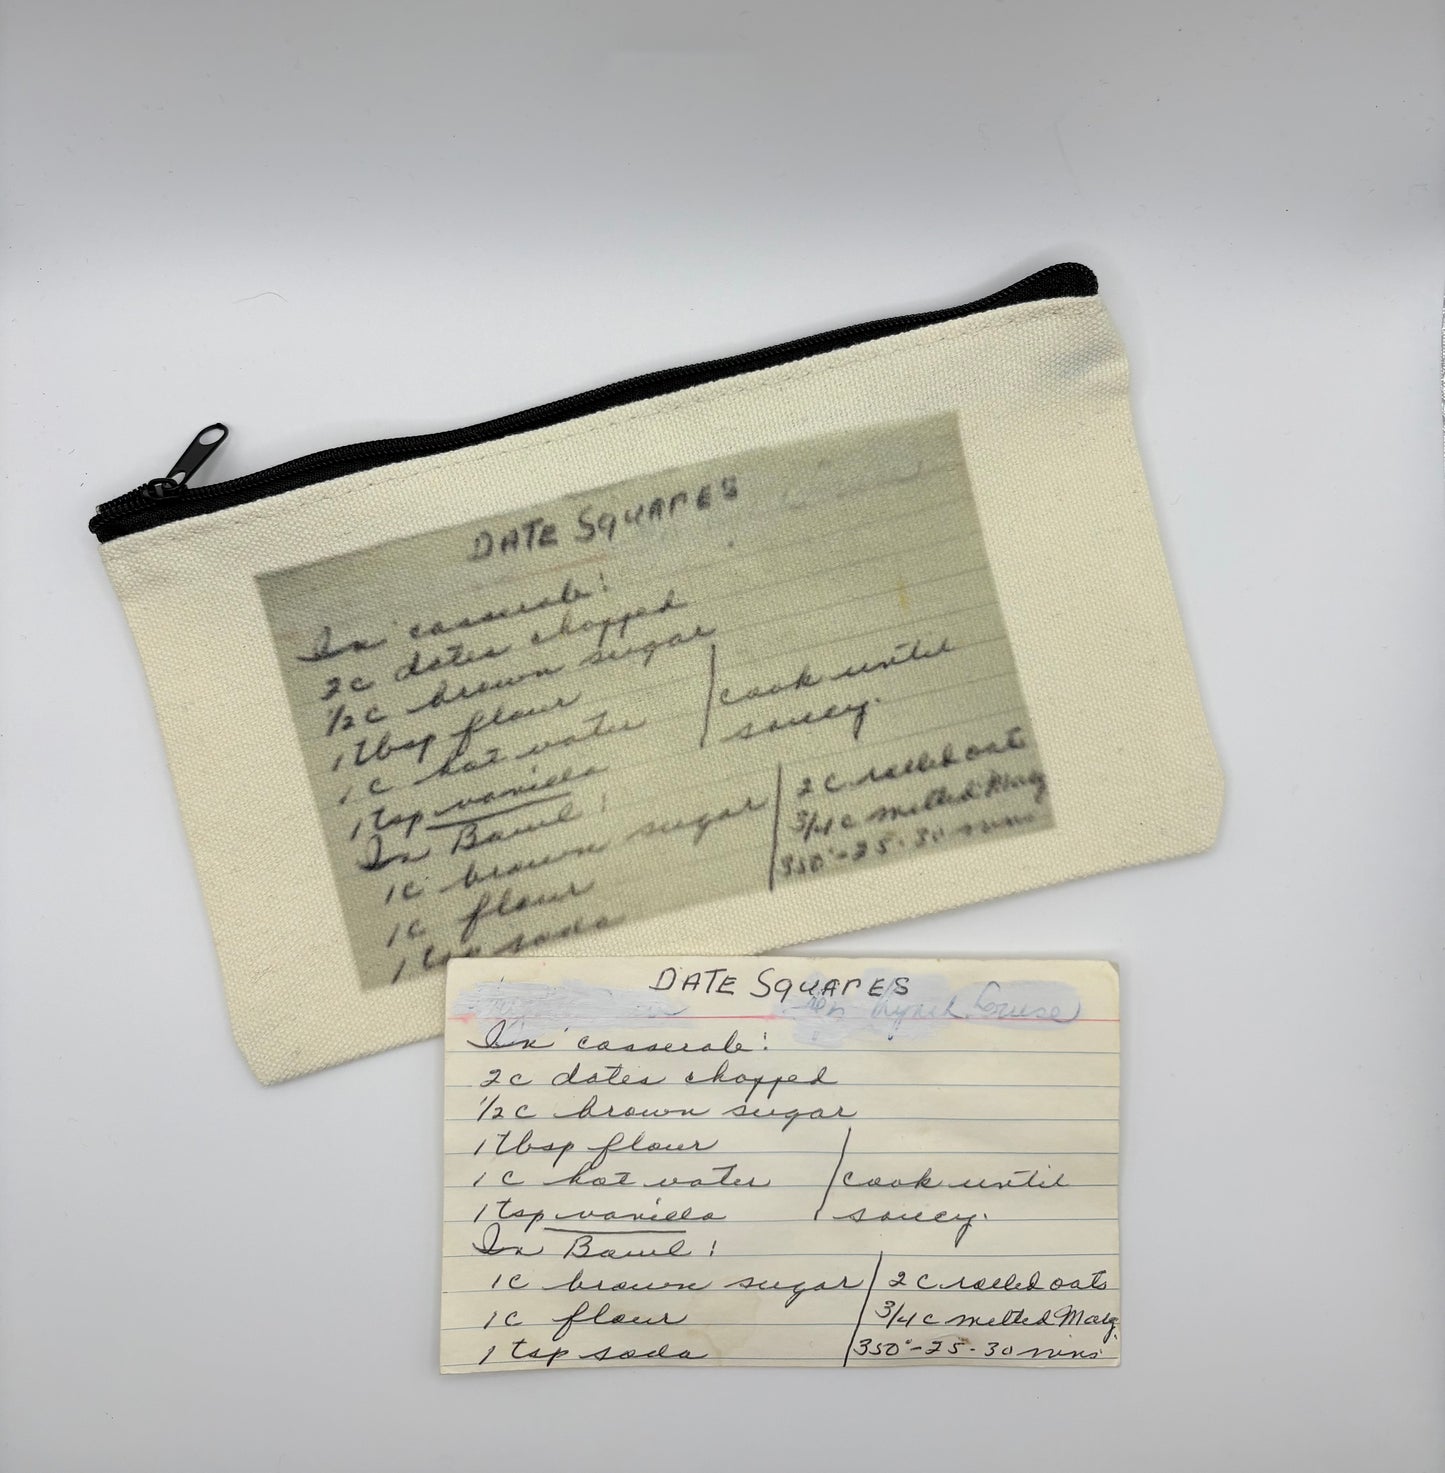 DATE SQUARES
In casserole:
2c dates chopped
1/2 c brown sugar
1 Tbsp flour
1 c hot water
cook until
1 tsp vanilla
saucy.
In Bowl:
1c brown sugar
2 c rolled oats
1c flour
3/4 c melted Marg
1 tsp soda
350°-25-30 mins
DATE SQUARES
Lynch. Louise
In casserole:
2c dates chopped
1/2 c brown sugar
1 Tbsp flour
1 c hot water
cook until
1 tsp vanilla
saucy.
In Bowl:
1c brown sugar
2 c rolled oats
1c flour
3/4 c melted Marg.
1 tsp soda
350°-25-30 mins